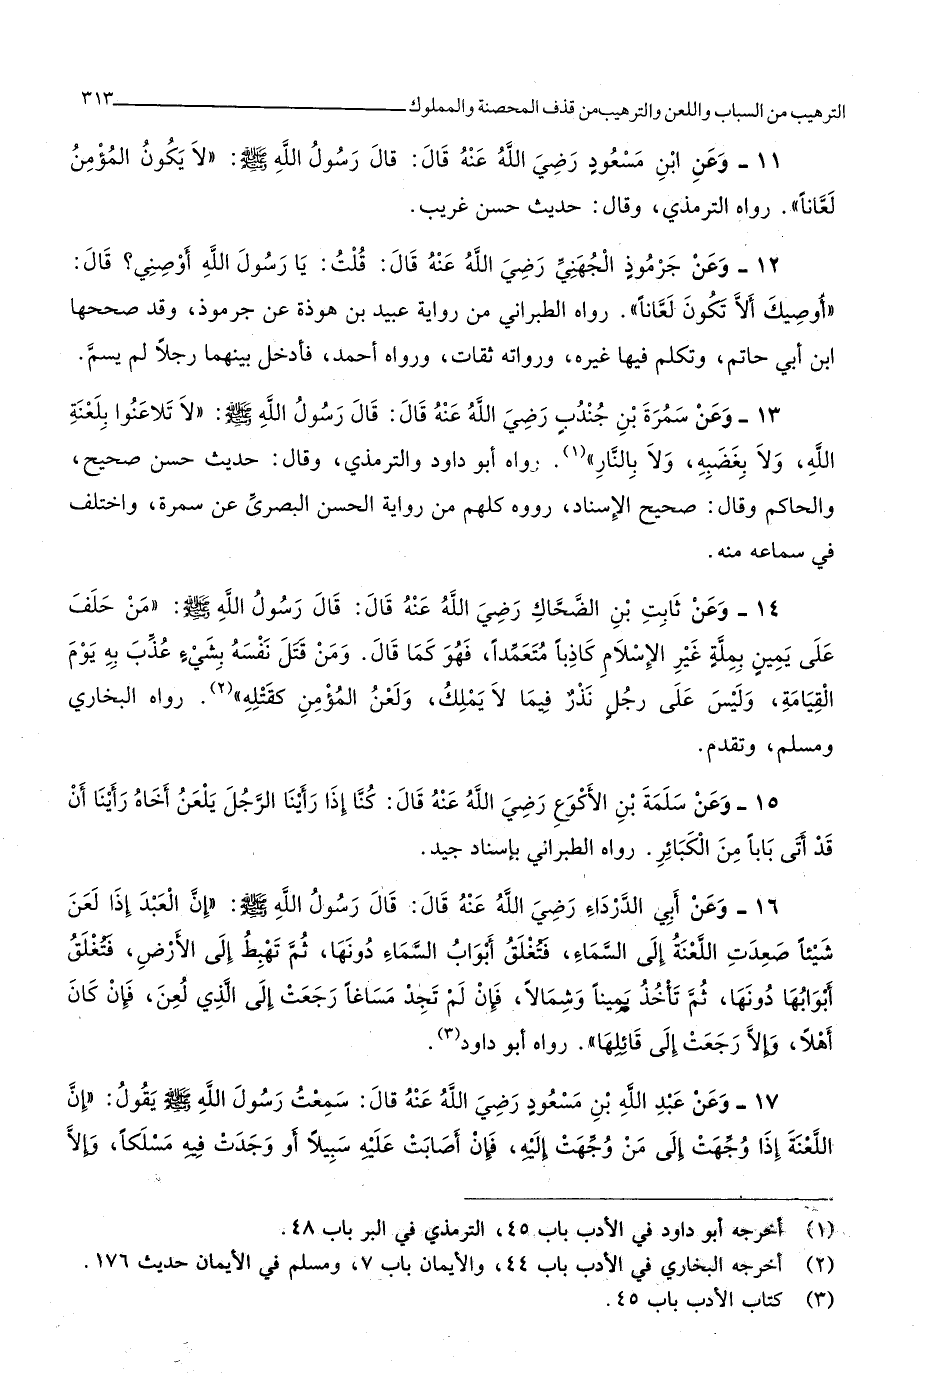 الترهيب من السباب واللعن والترهيب من قذف المحصنة والمملوك ٣١٣
١١ ـ وَعَنِ ابْنِ مَسْعُودٍ رَضِيَ اللَّهُ عَنْهُ قَالَ: قَالَ رَسُولُ اللَّهِ ﷺ: «لاَ يَكُونُ المُؤْمِنُ
لَعَّاناً». رواه الترمذي، وقال: حديث حسن غريب.
١٢ ـ وَعَنْ جَرْمُوذٍ الْجُهَنِيِّ رَضِيَ اللَّهُ عَنْهُ قَالَ: قُلْتُ: يَا رَسُولَ اللَّهِ أَوْصِنِي؟ قَالَ:
«أُوصِيكَ أَلاَّ تَكُونَ لَعَّاناً». رواه الطبراني من رواية عبيد بن هوذة عن جرموذ، وقد صححها
ابن أبي حاتم، وتكلم فيها غيره، ورواته ثقات، ورواه أحمد، فأدخل بينهما رجلاً لم يسمَّ.
١٣ ـ وَعَنْ سَمُرَةَ بْنِ جُنْدُبٍ رَضِيَ اللَّهُ عَنْهُ قَالَ: قَالَ رَسُولُ اللَّهِ ﷺ: «لاَ تَلاَعَنُوا بِلَعْنَةِ
اللَّهِ، وَلاَ بِغَضَبِهِ، وَلاَ بِالنَّارِ»(١). رواه أبو داود والترمذي، وقال: حديث حسن صحيح،
والحاكم وقال: صحيح الإسناد، رووه كلهم من رواية الحسن البصريِّ عن سمرة، واختلف
في سماعه منه.
١٤ ـ وَعَنْ ثَابِتِ بْنِ الضَّحَّاكِ رَضِيَ اللَّهُ عَنْهُ قَالَ: قَالَ رَسُولُ اللَّهِ ﷺ: «مَنْ حَلَفَ
عَلَى يَمِينٍ بِمِلَّةٍ غَيْرِ الإِسْلاَمِ كَاذِباً مُتَعَمِّداً، فَهُوَ كَمَا قَالَ. وَمَنْ قَتَلَ نَفْسَهُ بِشَيْءٍ عُذِّبَ بِهِ يَوْمَ
الْقِيَامَةِ، وَلَيْسَ عَلَى رجُلٍ نَذْرٌ فِيمَا لاَ يَمْلِكُ، وَلَعْنُ المُؤْمِنِ كقَتْلِهِ»(٢). رواه البخاري
ومسلم، وتقدم.
١٥ ـ وَعَنْ سَلَمَةَ بْنِ الأَكْوَعِ رَضِيَ اللَّهُ عَنْهُ قَالَ: كُنَّا إِذَا رَأَيْنَا الرَّجُلَ يَلْعَنُ أَخَاهُ رَأَيْنَا أَنْ
قَدْ أَتَى بَاباً مِنَ الْكَبَائِرِ. رواه الطبراني بإسناد جيد.
١٦ ـ وَعَنْ أَبِي الدَّرْدَاءِ رَضِيَ اللَّهُ عَنْهُ قَالَ: قَالَ رَسُولُ اللَّهِ ﷺ: «إِنَّ الْعَبْدَ إِذَا لَعَنَ
شَيْئاً صَعِدَتِ اللَّعْنَةُ إِلَى السَّمَاءِ، فَتُغْلَقُ أَبْوَابُ السَّمَاءِ دُونَهَا، ثُمَّ تَهْبِطُ إِلَى الأَرْضِ، فَتُغْلَقُ
أَبْوَابُهَا دُونَهَا، ثُمَّ تَأْخُذُ يَمِيناً وَشِمَالاً، فَإِنْ لَمْ تَجِدْ مَسَاغاً رَجَعَتْ إِلَى الَّذِي لُعِنَ، فَإِنْ كَانَ
أَهْلاً، وَإِلاَّ رَجَعَتْ إِلَى قَائِلِهَا». رواه أبو داود(٣).
١٧ ـ وَعَنْ عَبْدِ اللَّهِ بْنِ مَسْعُودٍ رَضِيَ اللَّهُ عَنْهُ قَالَ: سَمِعْتُ رَسُولَ اللَّهِ ﷺ يَقُولُ: «إِنَّ
اللَّعْنَةَ إِذَا وُجِّهَتْ إِلَى مَنْ وُجِّهَتْ إِلَيْهِ، فَإِنْ أَصَابَتْ عَلَيْهِ سَبِيلاً أَو وَجَدَتْ فِيهِ مَسْلَكاً، وَإِلاَّ
(١) أخرجه أبو داود في الأدب باب ٤٥، الترمذي في البر باب ٤٨.
(٢) أخرجه البخاري في الأدب باب ٤٤، والأيمان باب ٧، ومسلم في الأيمان حديث ١٧٦.
(٣) كتاب الأدب باب ٤٥.